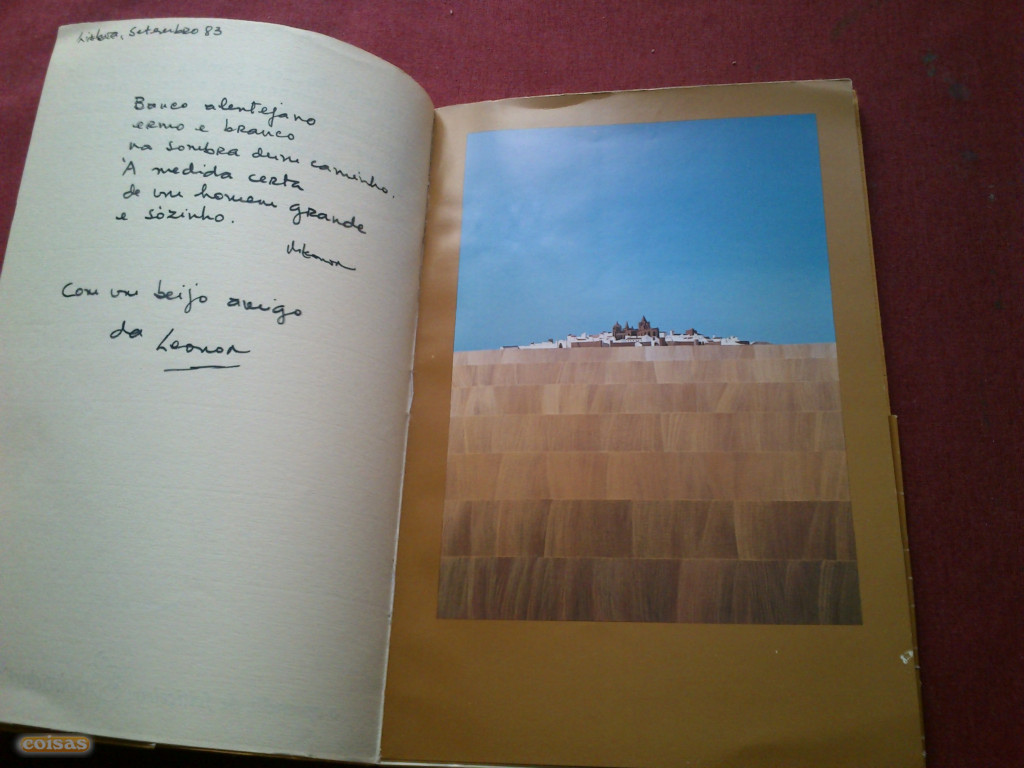 Lisboa, Setembro 83
Banco alentejano
ermo e branco
na sombra dum caminho.
À medida certa
de um homem grande
e sòzinho.
Com um beijo amigo
da Leonor
coisas